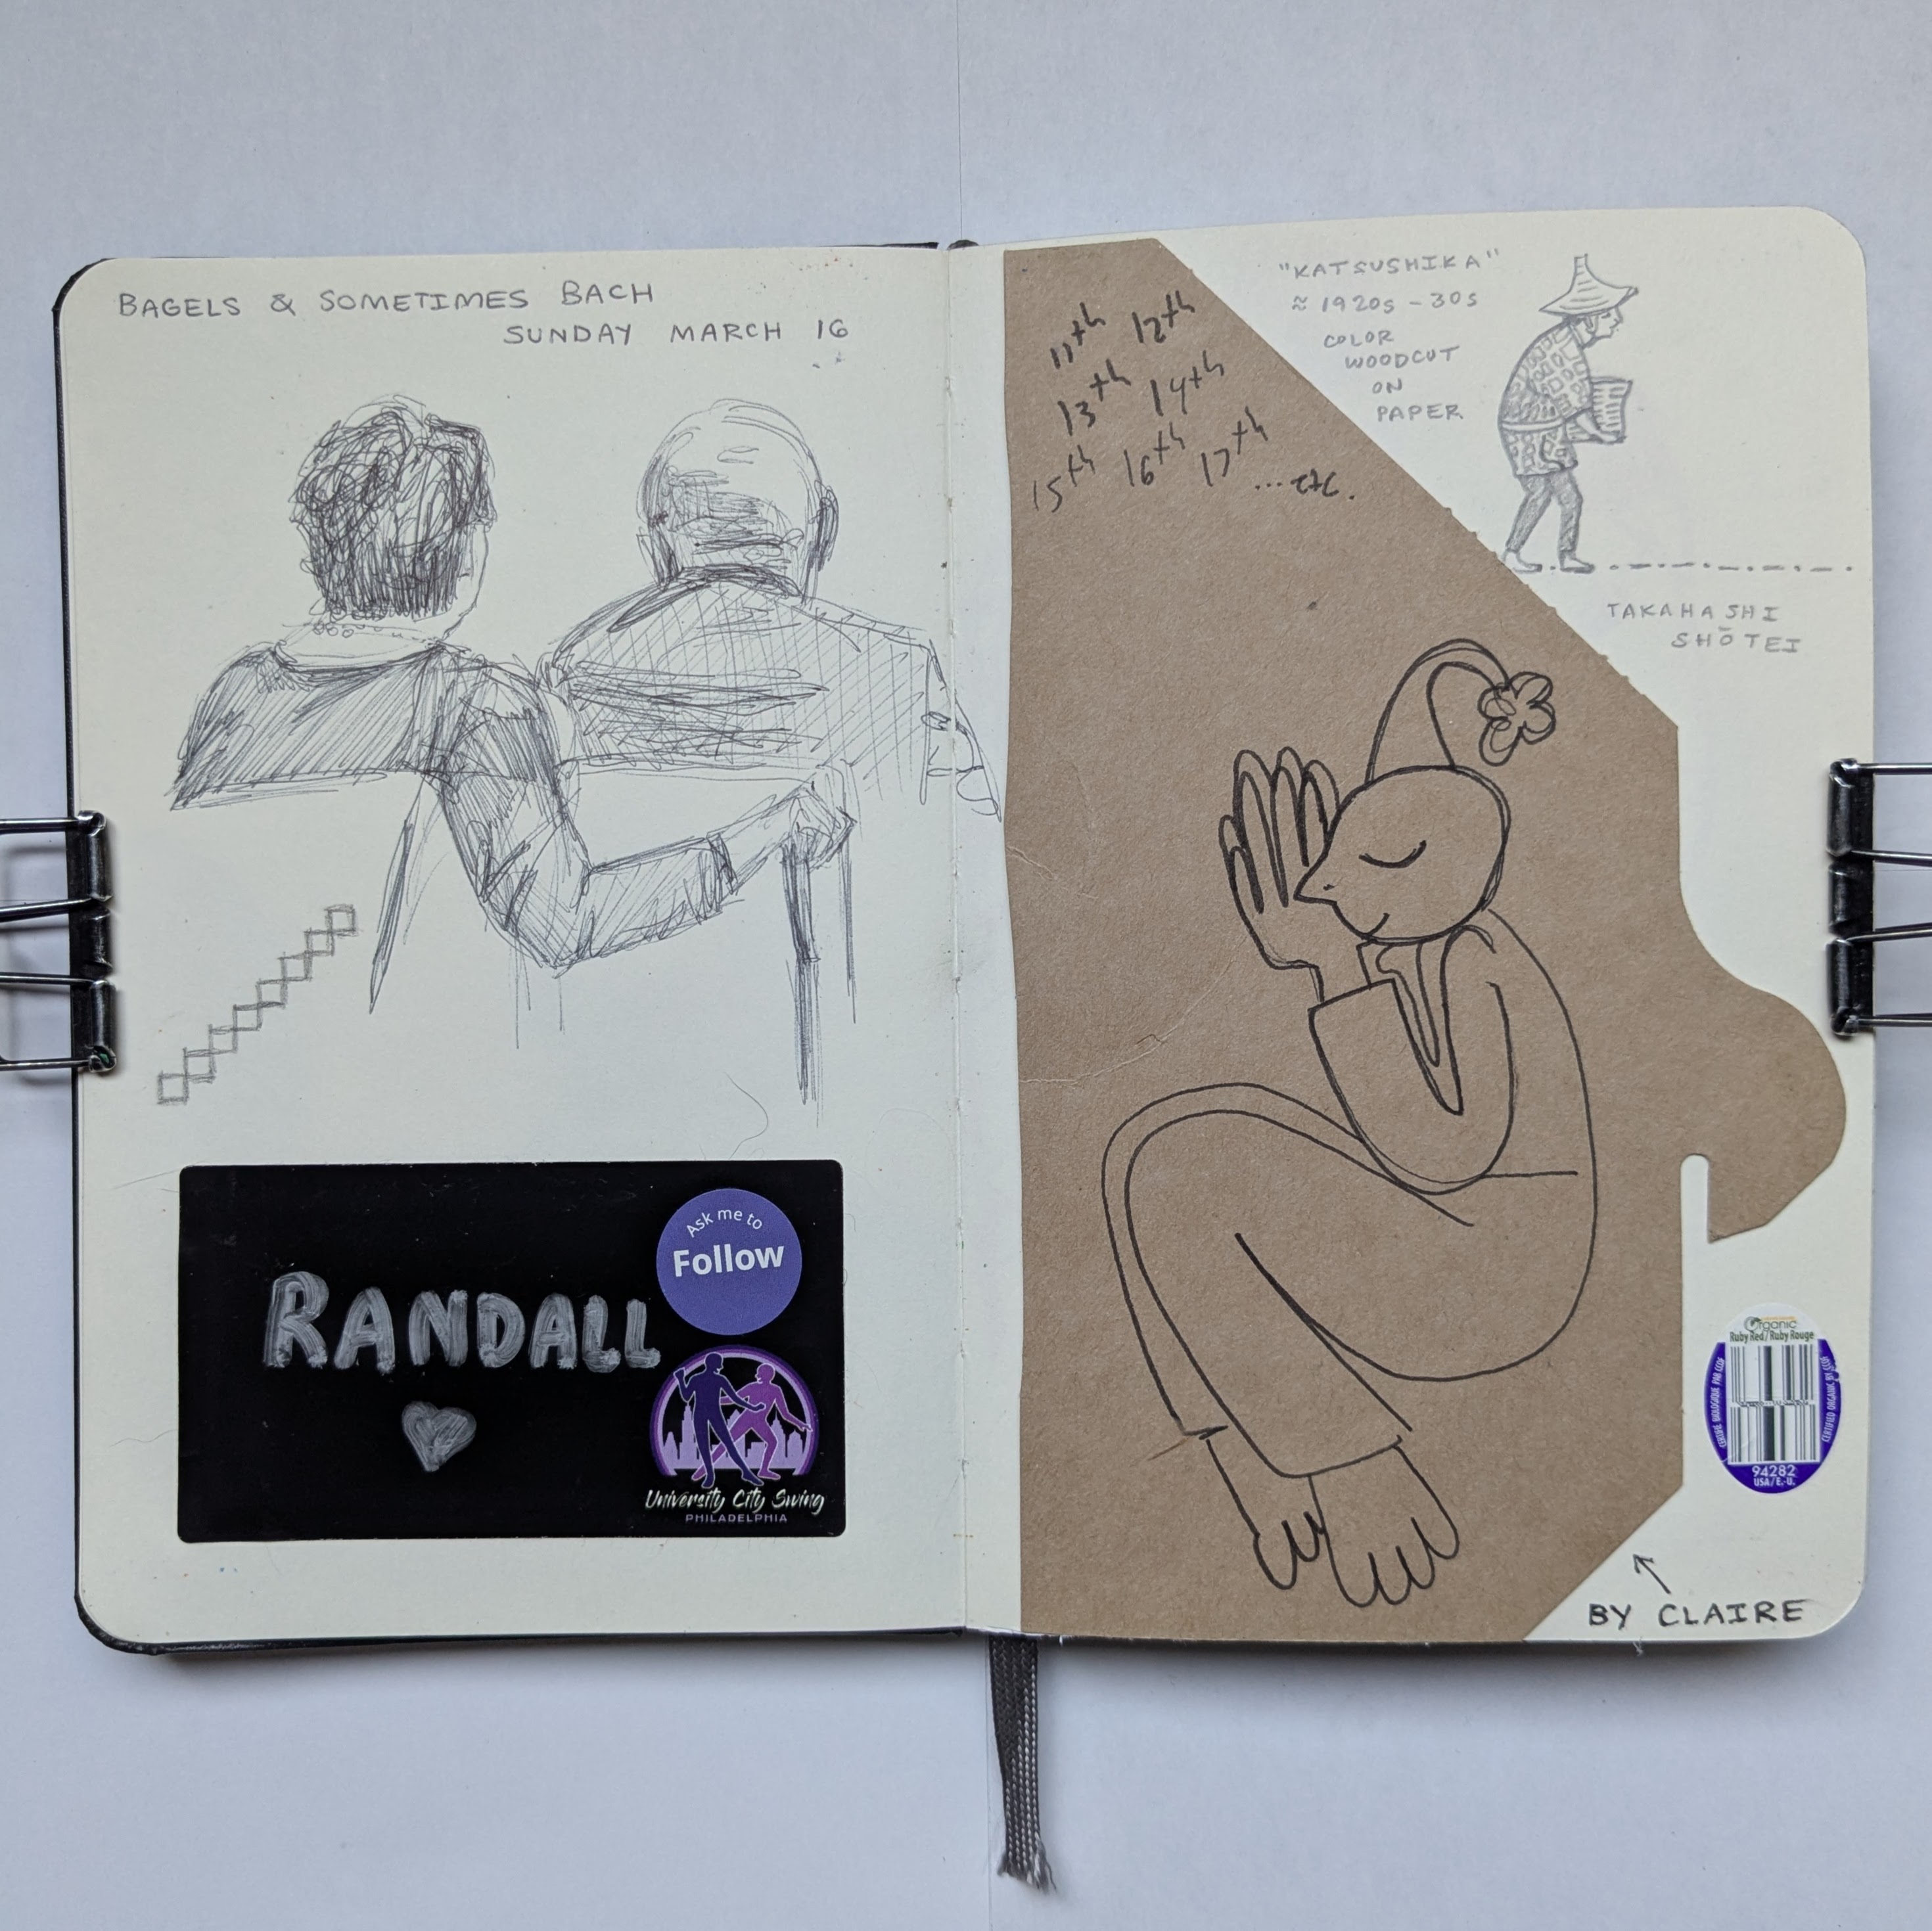 BAGELS & SOMETIMES BACH
SUNDAY MARCH 16
RANDALL
Ask me to
Follow
University City Swing
PHILADELPHIA
11th 12th
13th 14th
15th 16th 17th
...etc.
"KATSUSHIKA"
≈ 1920s - 30s
COLOR
WOODCUT
ON
PAPER
TAKAHASHI
SHŌTEI
Organic
Ruby Red/Ruby Rouge
CERTIFIÉ BIOLOGIQUE PAR CCOF
CERTIFIED ORGANIC BY CCOF
94282
USA/E.-U.
BY CLAIRE